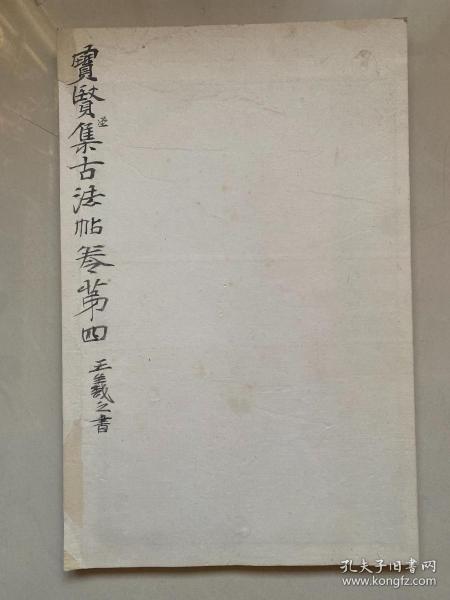 寶賢堂集古法帖卷第四
王羲之書
孔夫子旧书网
www.kongfz.com